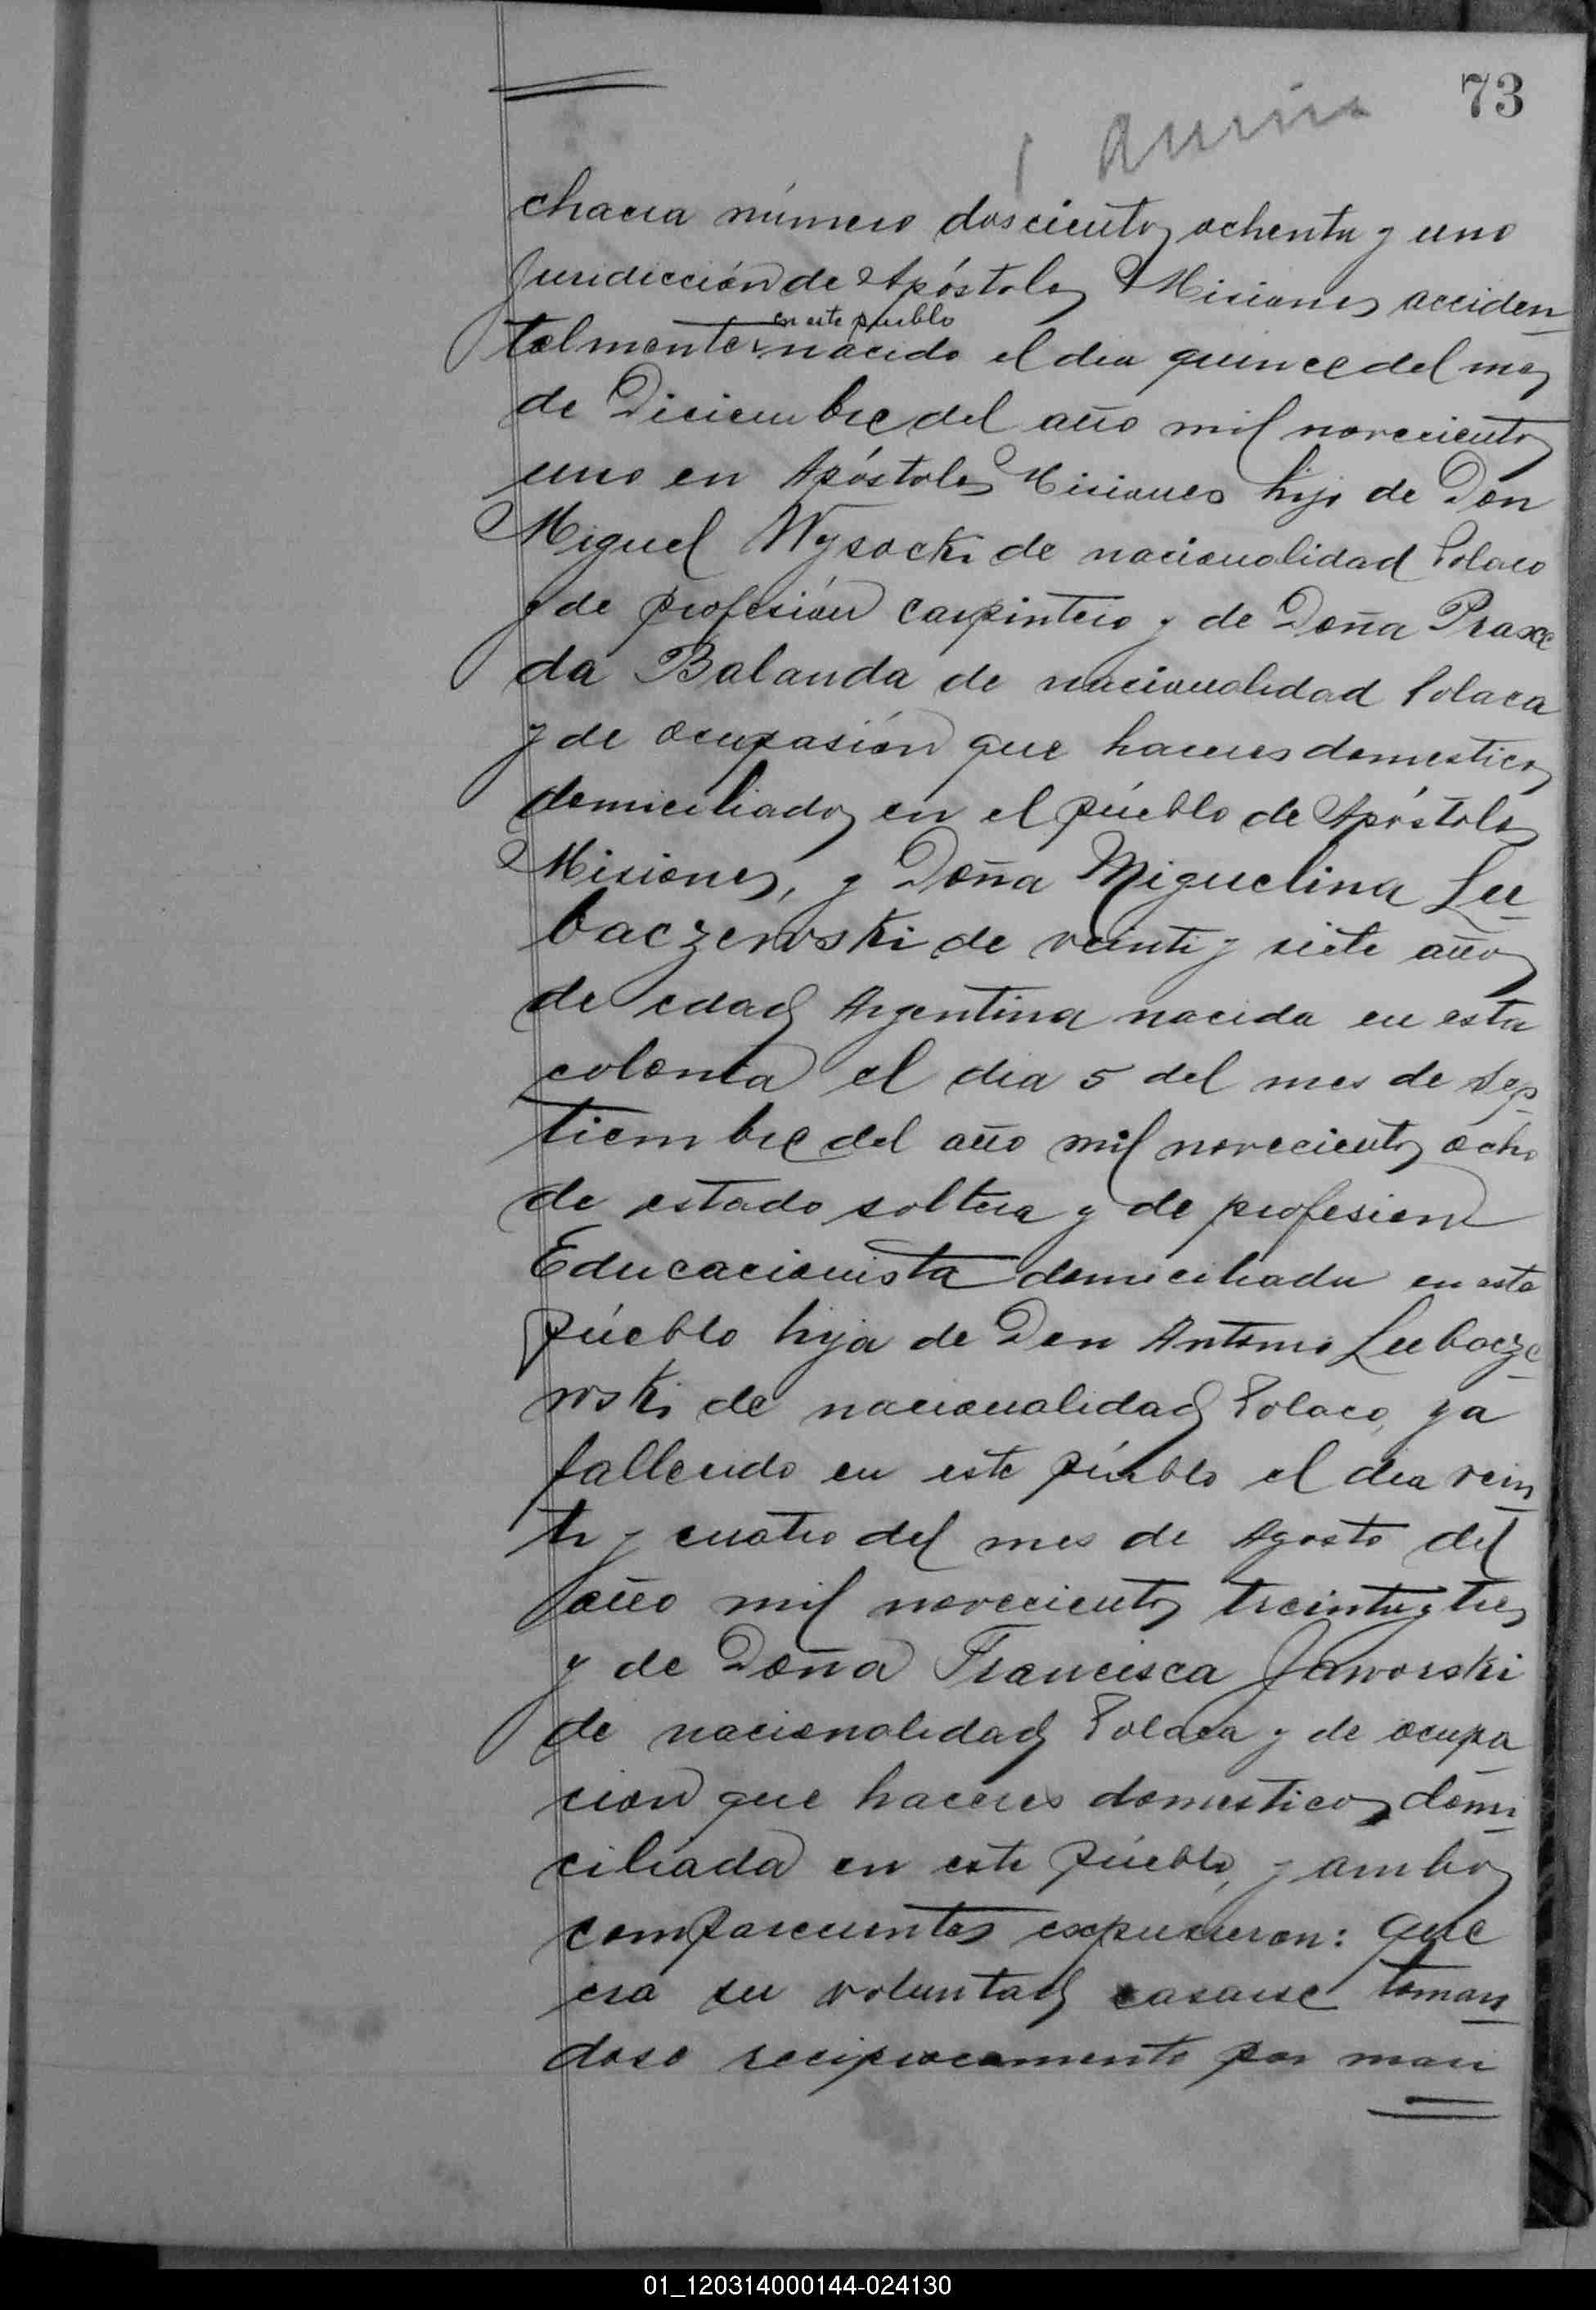 73
chacra número doscientos ochenta y uno
Juridicción de Apóstoles Misiones acciden-
en este pueblo
talmente nacido el dia quince del mes
de Diciembre del año mil novecientos
uno en Apóstoles Misiones hijo de Don
Miguel Wysocki de nacionalidad Polaco
y de profesión carpintero y de Doña Praxe
da Balanda de nacionalidad Polaca
y de ocupasión que haceres domesticos
domiciliados en el pueblo de Apóstoles
Misiones, y Doña Miguelina Lu-
baczewski de veinti y siete años
de edad Argentina nacida en esta
colonia el dia 5 del mes de Sep-
tiembre del año mil novecientos ocho
de estado soltera y de profesion
Educacionista domiciliada en este
pueblo hija de Don Antonio Lubacze-
wski de nacionalidad Polaco, ya
fallecido en este pueblo el dia vein
ti y cuatro del mes de Agosto del
año mil novecientos treinta y tres
y de Doña Francisca Jaworski
de nacionalidad Polaca y de ocupa
cion que haceres domesticos domi-
ciliada en este pueblo, y ambos
comparecientes expusieron: que
era su voluntad casarse toman-
dose reciprocamente por mari
01_120314000144-024130